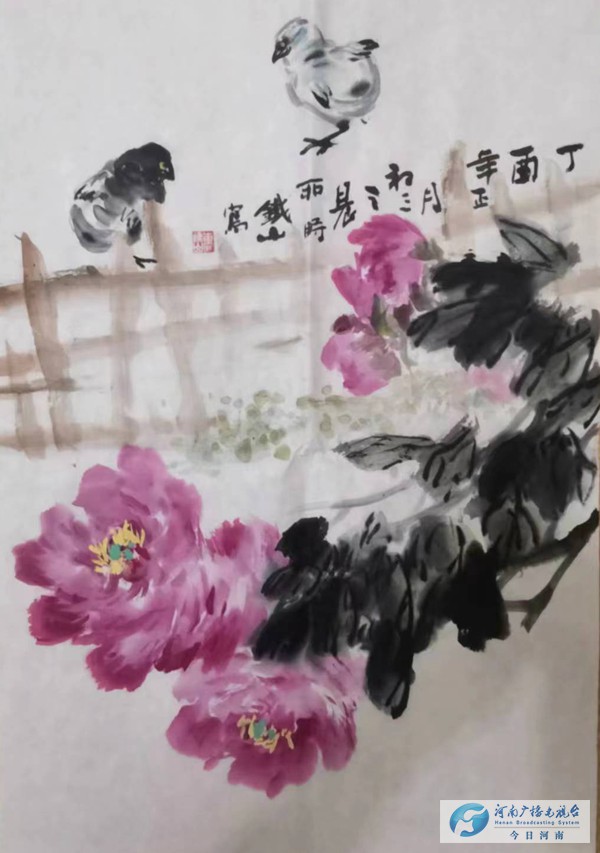 丁酉年正月初三之晨雨時鐵山寫
河南广播电视台
Henan Broadcasting System
今日河南